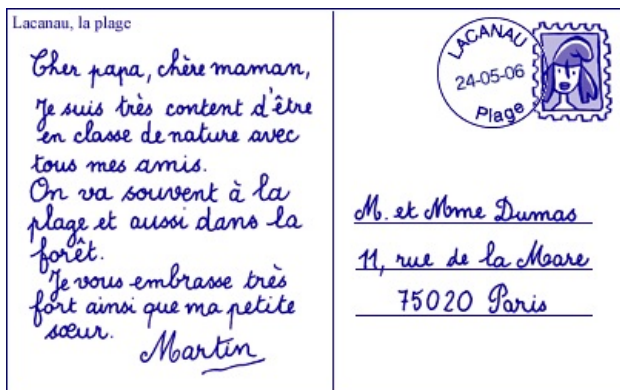 Lacanau, la plage
Cher papa, chère maman,
Je suis très content d'être
en classe de nature avec
tous mes amis.
On va souvent à la
plage et aussi dans la
forêt.
Je vous embrasse très
fort ainsi que ma petite
sœur.
Martin
LACANAU
24-05-06
Plage
M. et Mme Dumas
11, rue de la Mare
75020 Paris